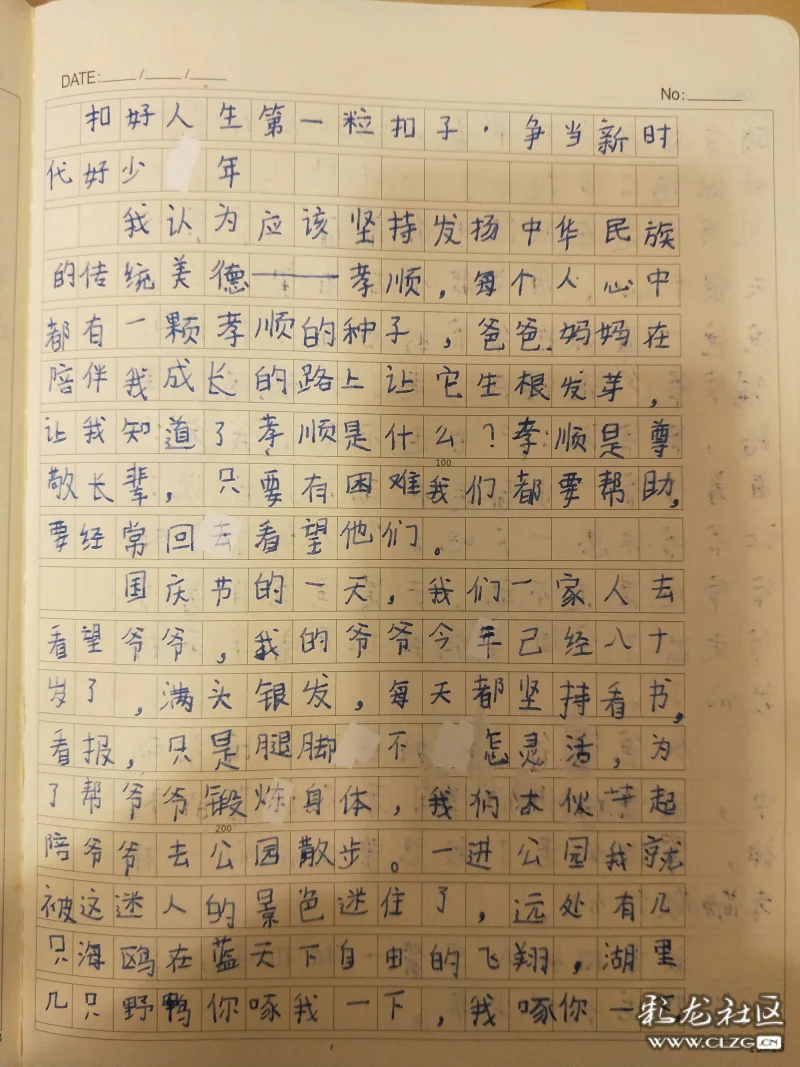 DATE:____/____/____
No:______
扣好人生第一粒扣子·争当新时
代好少年
我认为应该坚持发扬中华民族
的传统美德——孝顺，每个人心中
都有一颗孝顺的种子，爸爸妈妈在
陪伴我成长的路上让它生根发芽，
让我知道了孝顺是什么？孝顺是尊
敬长辈，只要有困难我们都要帮助，
100
要经常回去看望他们。
国庆节的一天，我们一家人去
看望爷爷，我的爷爷今年已经八十
岁了，满头银发，每天都坚持看书，
看报，只是腿脚不怎灵活，为
了帮爷爷锻炼身体，我们大伙一起
陪爷爷去公园散步。一进公园我就
200
被这迷人的景色迷住了，远处有几
只海鸥在蓝天下自由的飞翔，湖里
几只野鸭你啄我一下，我啄你一
彩龙社区
www.CLZG.cn